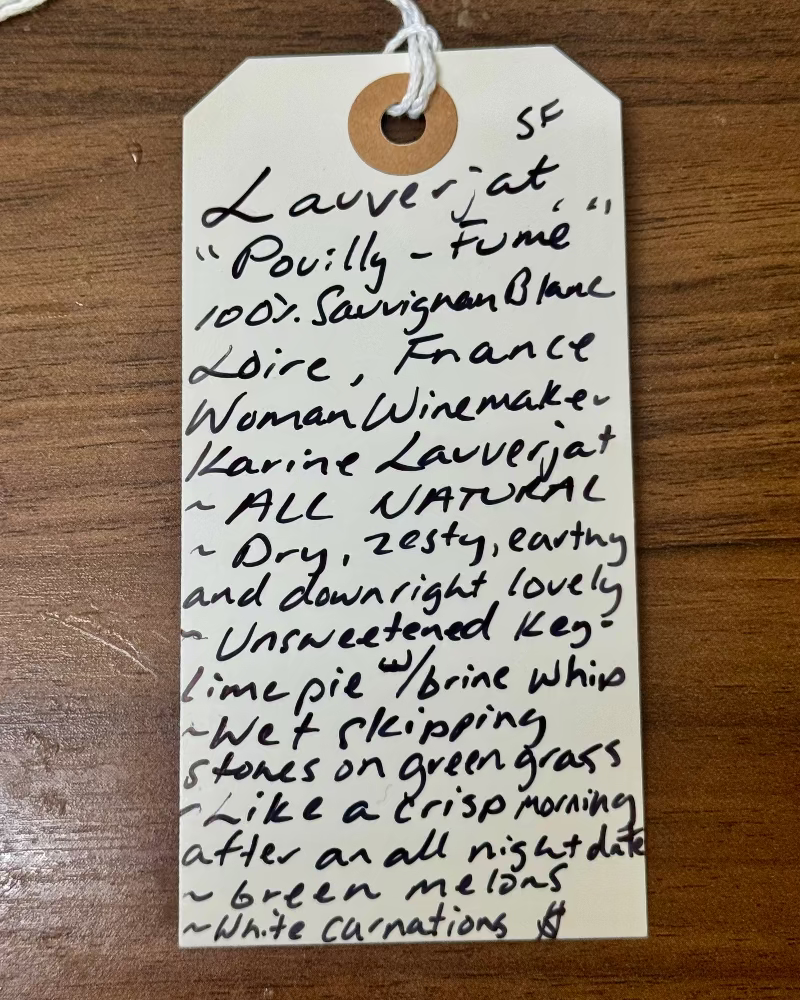 SF
Lauverjat
"Pouilly - Fumé"
100% Sauvignon Blanc
Loire, France
Woman Winemaker
Karine Lauverjat
~ ALL NATURAL
~ Dry, zesty, earthy
and downright lovely
~ Unsweetened Key-
lime pie w/brine whip
~Wet skipping
stones on green grass
~Like a crisp morning
after an all night date
~ Green melons
~White carnations